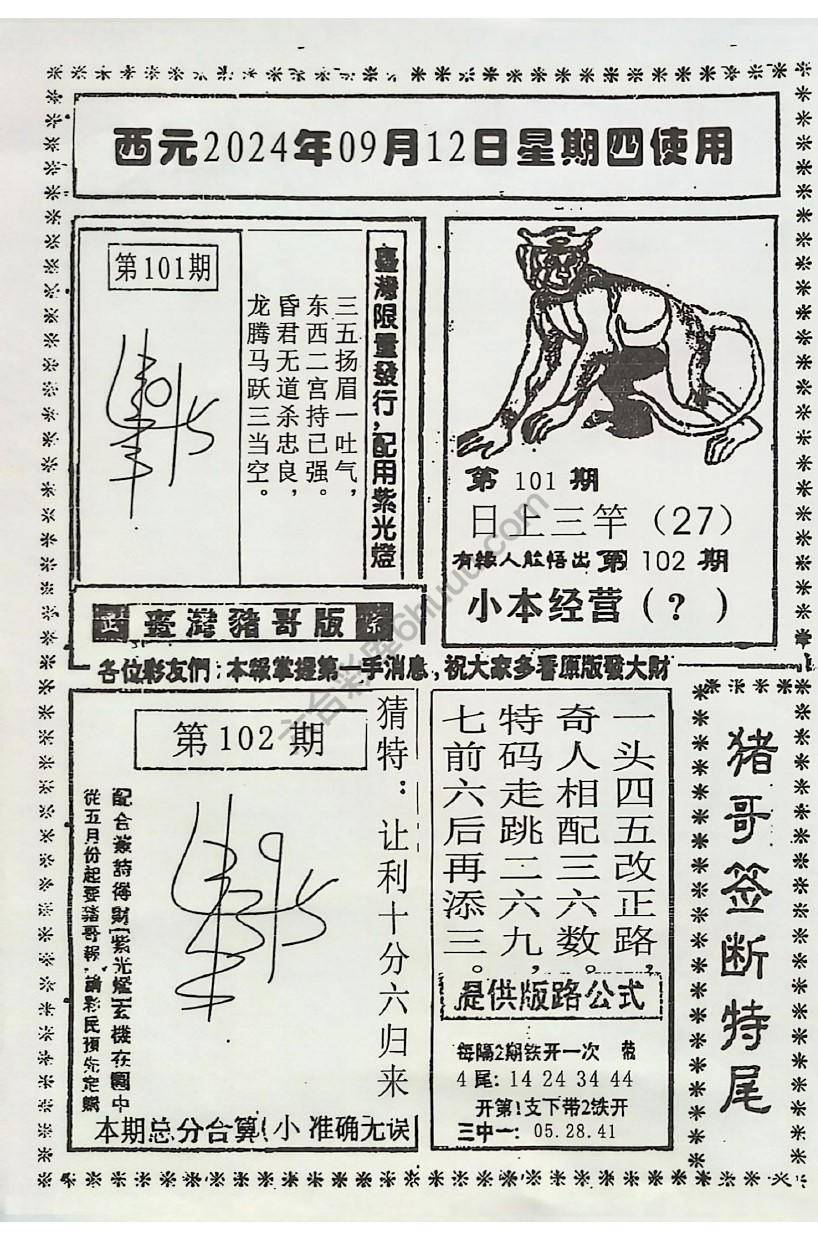 西元2024年09月12日星期四使用
第101期
臺灣限量發行,配用紫光燈
三五扬眉一吐气,
东西二宫持己强。
昏君无道杀忠良,
龙腾马跃三当空。
臺灣豬哥版
第 101 期
日上三竿(27)
有緣人能悟出第 102 期
小本经营(?)
各位彩友們:本報掌握第一手消息,祝大家多看原版發大財
第102期
猜特:让利十分六归来
配合叢詩得財[紫光燈]玄機在圖中
從五月份起要豬哥報,請彩民預先定購
本期总分合算(小 准确无误
一头四五改正路,
奇人相配三六数。
特码走跳二六九,
七前六后再添三。
提供版路公式
每隔2期铁开一次 带
4尾:14 24 34 44
开第1支下带2铁开
三中一:05.28.41
猪哥签断特尾
六合彩库6huuu.com